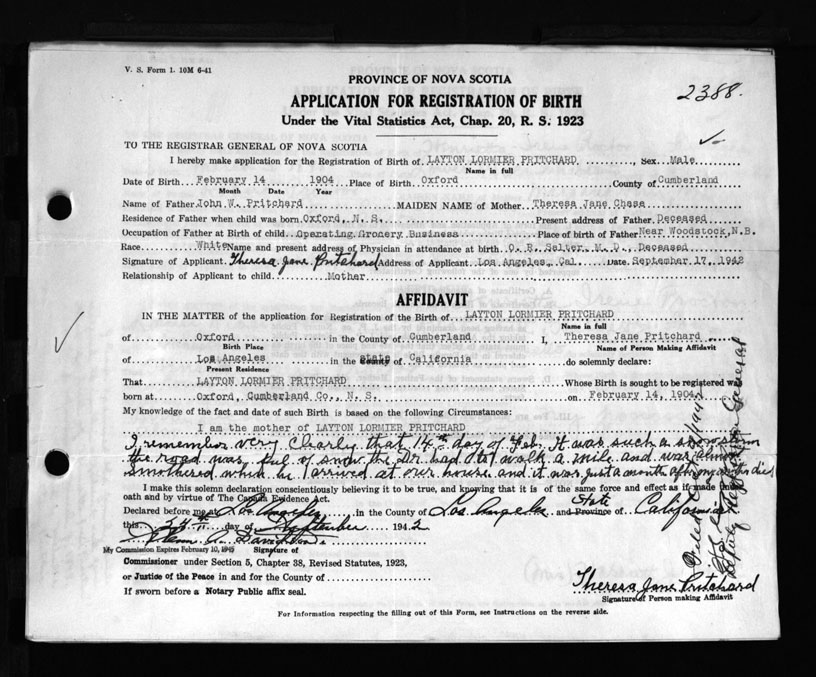 V. S. Form 1. 10M 6-41
2388.
PROVINCE OF NOVA SCOTIA
APPLICATION FOR REGISTRATION OF BIRTH
Under the Vital Statistics Act, Chap. 20, R. S. 1923
TO THE REGISTRAR GENERAL OF NOVA SCOTIA
I hereby make application for the Registration of Birth of LAYTON LORMIER PRITCHARD, Sex Male
Name in full
Date of Birth February 14 1904 Place of Birth Oxford County of Cumberland
Month Date Year
Name of Father John W. Pritchard MAIDEN NAME of Mother Theresa Jane Chase
Residence of Father when child was born Oxford, N. S. Present address of Father Deceased
Occupation of Father at Birth of child Operating Grocery Business Place of birth of Father Near Woodstock, N.B.
Race White Name and present address of Physician in attendance at birth O. B. Salter, M. D., Deceased
Signature of Applicant Theresa Jane Pritchard Address of Applicant Los Angeles, Cal. Date September 17, 1942
Relationship of Applicant to child Mother
AFFIDAVIT
IN THE MATTER of the application for Registration of the Birth of LAYTON LORMIER PRITCHARD
Name in full
of Oxford in the County of Cumberland I, Theresa Jane Pritchard
Birth Place Name of Person Making Affidavit
of Los Angeles in the County state of California do solemnly declare:
Present Residence
That LAYTON LORMIER PRITCHARD Whose Birth is sought to be registered was
born at Oxford, Cumberland Co., N. S. on February 14, 1904.
My knowledge of the fact and date of such Birth is based on the following Circumstances:
I am the mother of LAYTON LORMIER PRITCHARD
I remember very Clearly that 14th day of Feb. It was such a snow storm
the road was full of snow the Dr. had to walk a mile and was almost
smothered when he arrived at our house and it was just a month after my mother died
I make this solemn declaration conscientiously believing it to be true, and knowing that it is of the same force and effect as if made under
oath and by virtue of The Canada Evidence Act.
Declared before me at Los Angeles in the County of Los Angeles State and Province of California
this 24th day of September 1942
My Commission Expires February 10, 1945 Signature of
Commissioner under Section 5, Chapter 38, Revised Statutes, 1923,
or Justice of the Peace in and for the County of
If sworn before a Notary Public affix seal.
Theresa Jane Pritchard
Signature of Person making Affidavit
For Information respecting the filling out of this Form, see Instructions on the reverse side.
Deputy Registrar General